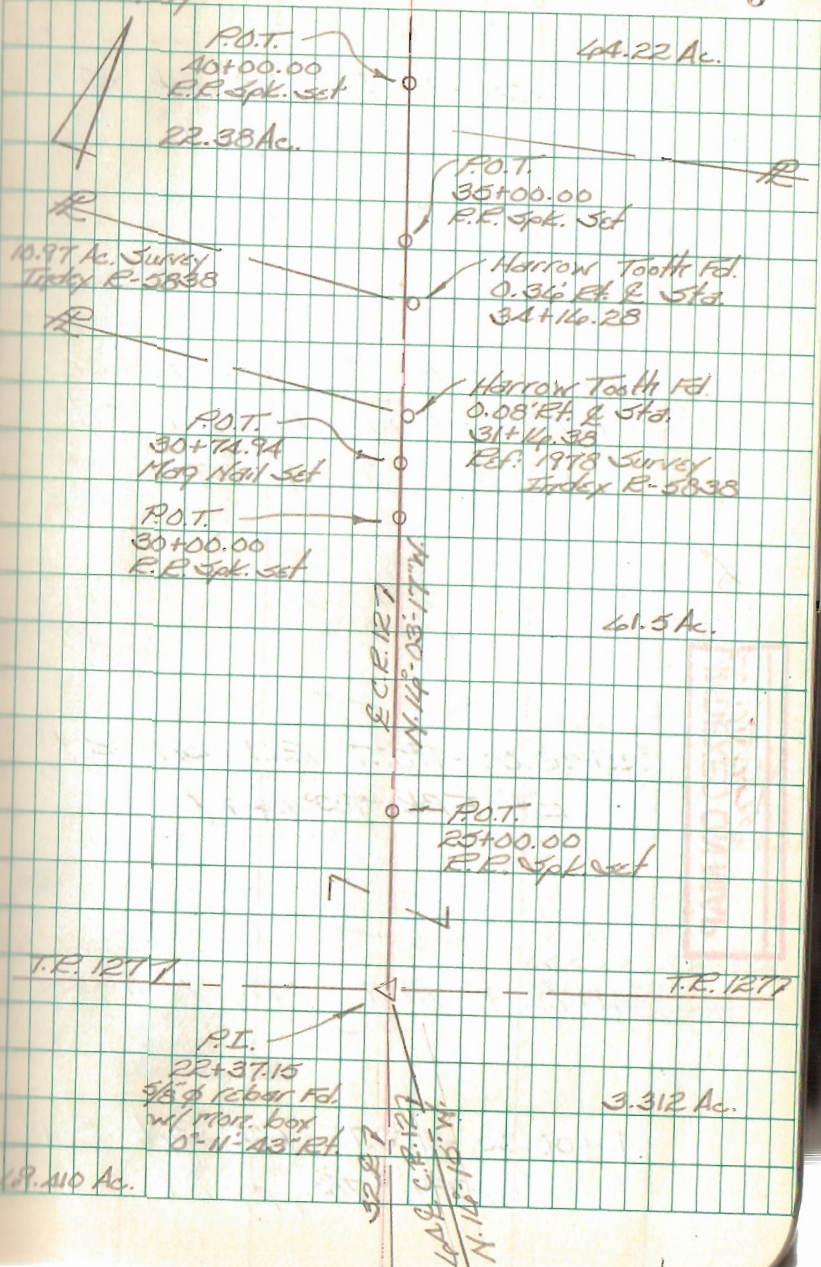 P.O.T.
40+00.00
R.R. Spk. Set
64.22 Ac.
22.38 Ac.
P.O.T.
35+00.00
R.R. Spk. Set
PL
PL
10.97 Ac. Survey
Index R-5838
Harrow Tooth Fd.
0.36' Rt. ℄ Sta.
34+16.28
PL
Harrow Tooth Fd.
0.08' Rt. ℄ Sta.
31+16.38
Ref: 1978 Survey
Index R-5838
P.O.T.
30+74.94
Mag Nail Set
P.O.T.
30+00.00
R.R. Spk. Set
℄ C.R. 127
N. 16°-03'-17" W.
61.5 Ac.
P.O.T.
25+00.00
R.R. Spk Set
T.R. 1277
T.R. 1277
P.I.
22+37.15
5/8" ø rebar Fd.
w/ mon. box
0°-11'-43" Rt.
3.312 Ac.
℄ C.R. 127
N. 16°-15' W.
.410 Ac.